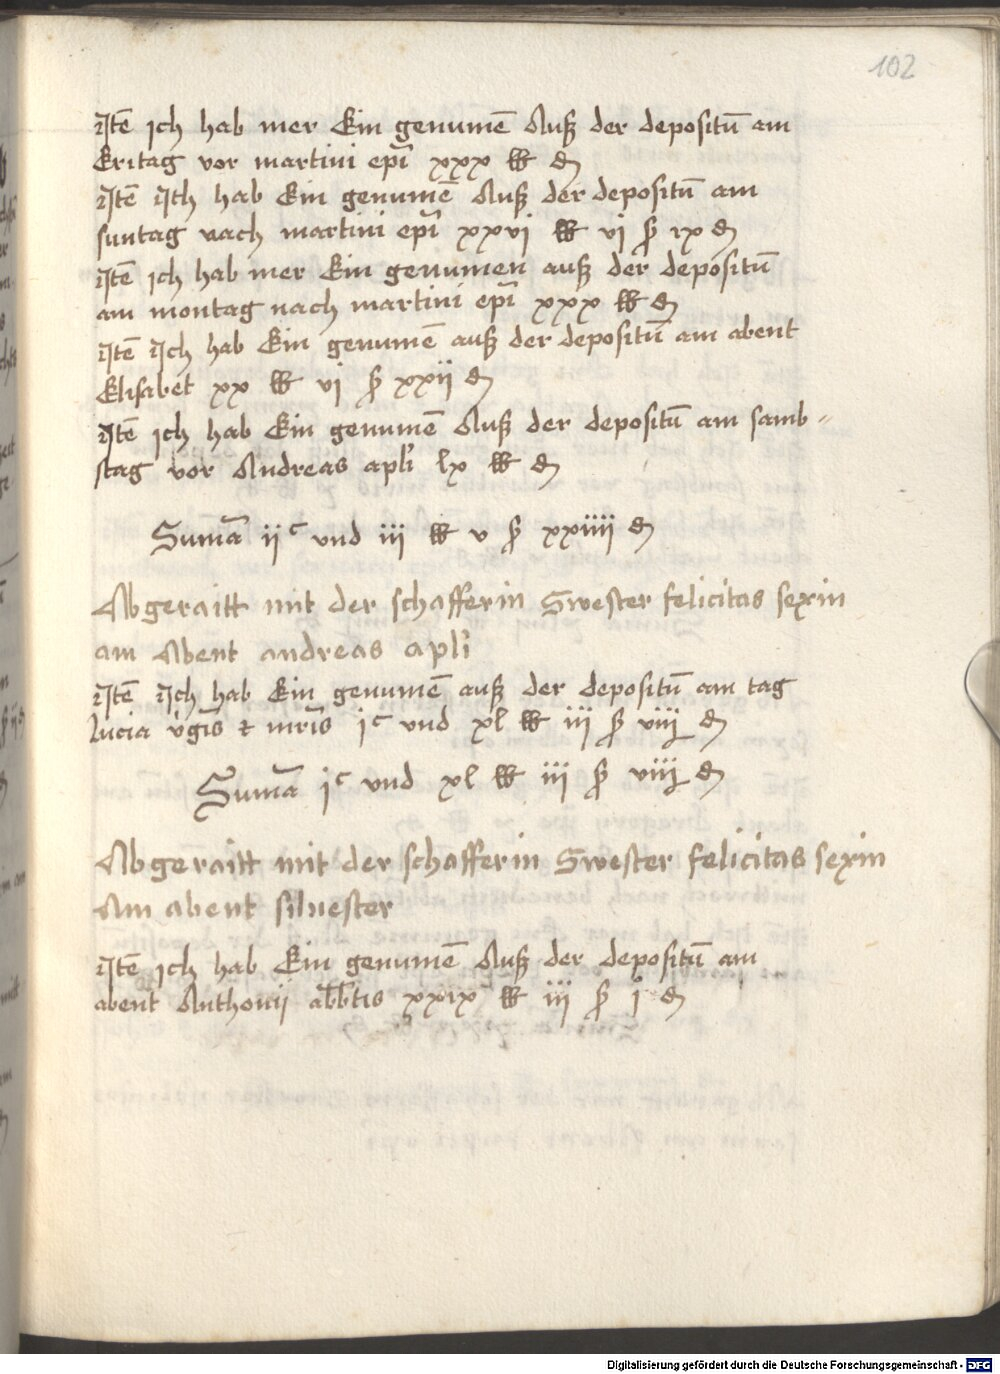 102
Itē ich hab mer Ein genumē Auß der depositū am
Eritag vor martini epī xxx ℔ ₰
Itē Ich hab Ein genumē Auß der depositū am
suntag nach martini epī xxvi ℔ vi ß ix ₰
Itē ich hab mer Ein genumen auß der depositū
am montag nach martini epī xxx ℔ ₰
Itē Ich hab Ein genumē auß der depositū am abent
Elisabet xx ℔ vi ß xxij ₰
Itē ich hab Ein genumē Auß der depositū am samb-
stag vor Andreas apli lx ℔ ₰
Sumā ij c vnd iij ℔ v ß xxiiij ₰
Abgeraitt mit der schafferin Swester felicitas sexin
am Abent andreas apli
Itē Ich hab Ein genumē auß der depositū am tag
lucia vḡis et mr̄is j c vnd xl ℔ iij ß viij ₰
Sumā j c vnd xl ℔ iij ß viij ₰
Abgeraitt mit der schafferin Swester felicitas sexin
Am abent siluester
Itē ich hab Ein genumē Auß der depositū am
abent Anthonij abb̄tis xxix ℔ iij ß i ₰
Digitalisierung gefördert durch die Deutsche Forschungsgemeinschaft - DFG